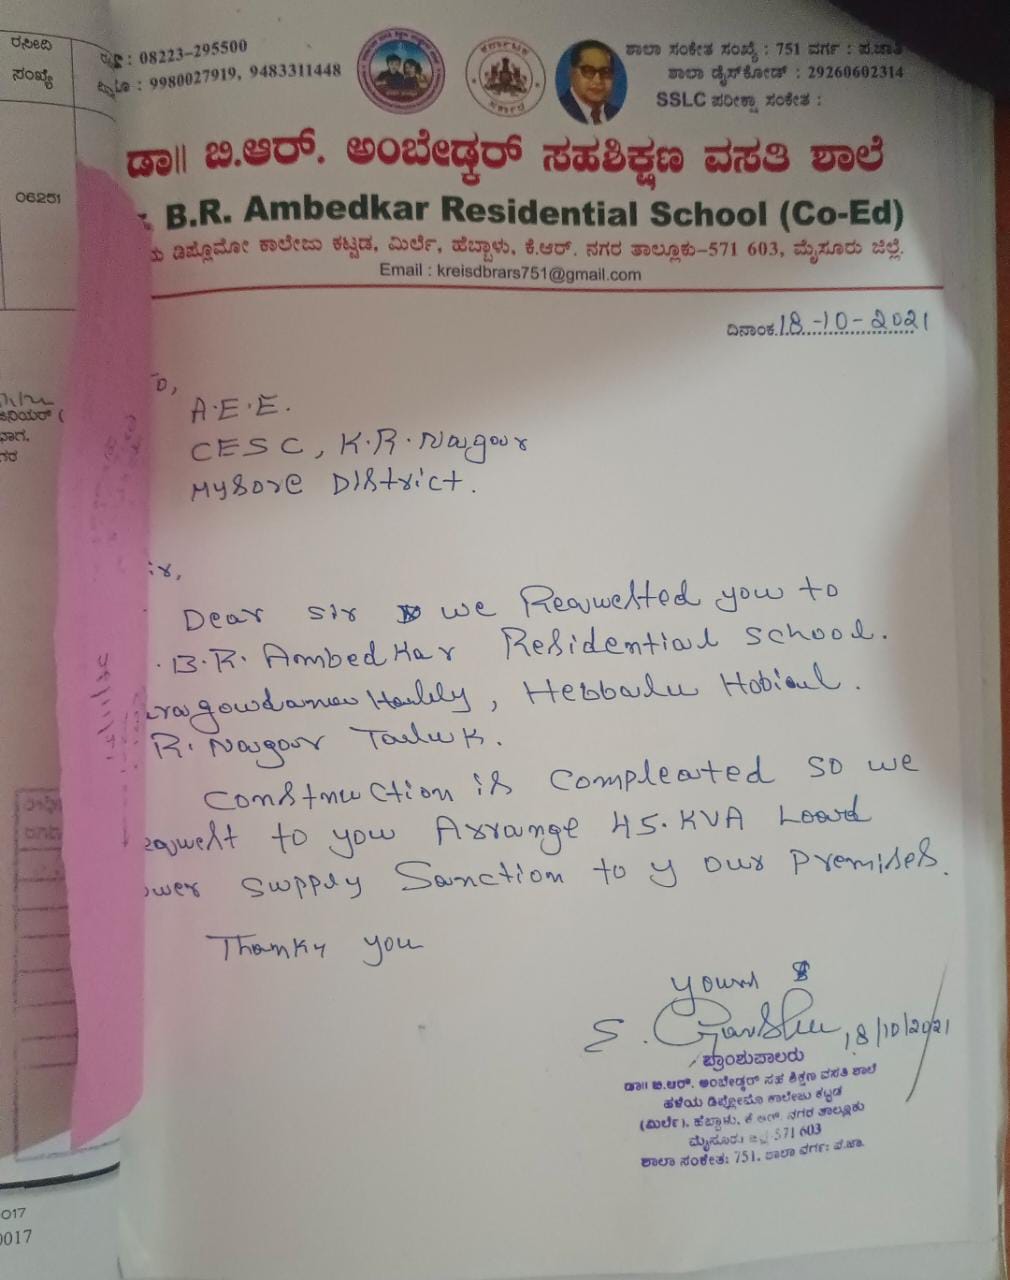 ರಸೀದಿ
ಸಂಖ್ಯೆ
06251
: 08223-295500
: 9980027919, 9483311448
ಶಾಲಾ ಸಂಕೇತ ಸಂಖ್ಯೆ : 751 ವರ್ಗ : ಪ.ಜಾತಿ
ಶಾಲಾ ಡೈಸ್‌ಕೋಡ್ : 29260602314
SSLC ಪರೀಕ್ಷಾ ಸಂಕೇತ :
ಡಾ|| ಬಿ.ಆರ್. ಅಂಬೇಡ್ಕರ್ ಸಹಶಿಕ್ಷಣ ವಸತಿ ಶಾಲೆ
B.R. Ambedkar Residential School (Co-Ed)
ಡಿಪ್ಲೊಮೋ ಕಾಲೇಜು ಕಟ್ಟಡ, ಮಿರ್ಲೆ, ಹೆಬ್ಬಾಳು, ಕೆ.ಆರ್. ನಗರ ತಾಲ್ಲೂಕು-571 603, ಮೈಸೂರು ಜಿಲ್ಲೆ.
Email : kreisdbrars751@gmail.com
ದಿನಾಂಕ.18-10-2021
To,
A.E.E.
CESC, K.R.Nagar
Mysore District.
Dear Sir we Requested you to
B.R. Ambedkar Residential School.
Hebbalu Hobial.
R. Nagar Taluk.
Construction is compleated so we
to you Arrange 45.KVA Load
supply Sanction to your premises.
Thanky you
yours
S.
18/10/2021
ಪ್ರಾಂಶುಪಾಲರು
ಡಾ|| ಬಿ.ಆರ್. ಅಂಬೇಡ್ಕರ್ ಸಹ ಶಿಕ್ಷಣ ವಸತಿ ಶಾಲೆ
ಹಳೆಯ ಡಿಪ್ಲೋಮೊ ಕಾಲೇಜು ಕಟ್ಟಡ
(ಮಿರ್ಲೆ), ಹೆಬ್ಬಾಳು, ಕೆ ಆರ್. ನಗರ ತಾಲ್ಲೂಕು
ಮೈಸೂರು 571 603
ಶಾಲಾ ಸಂಕೇತ: 751, ಶಾಲಾ ವರ್ಗ: ಪ.ಜಾ.
017
0017